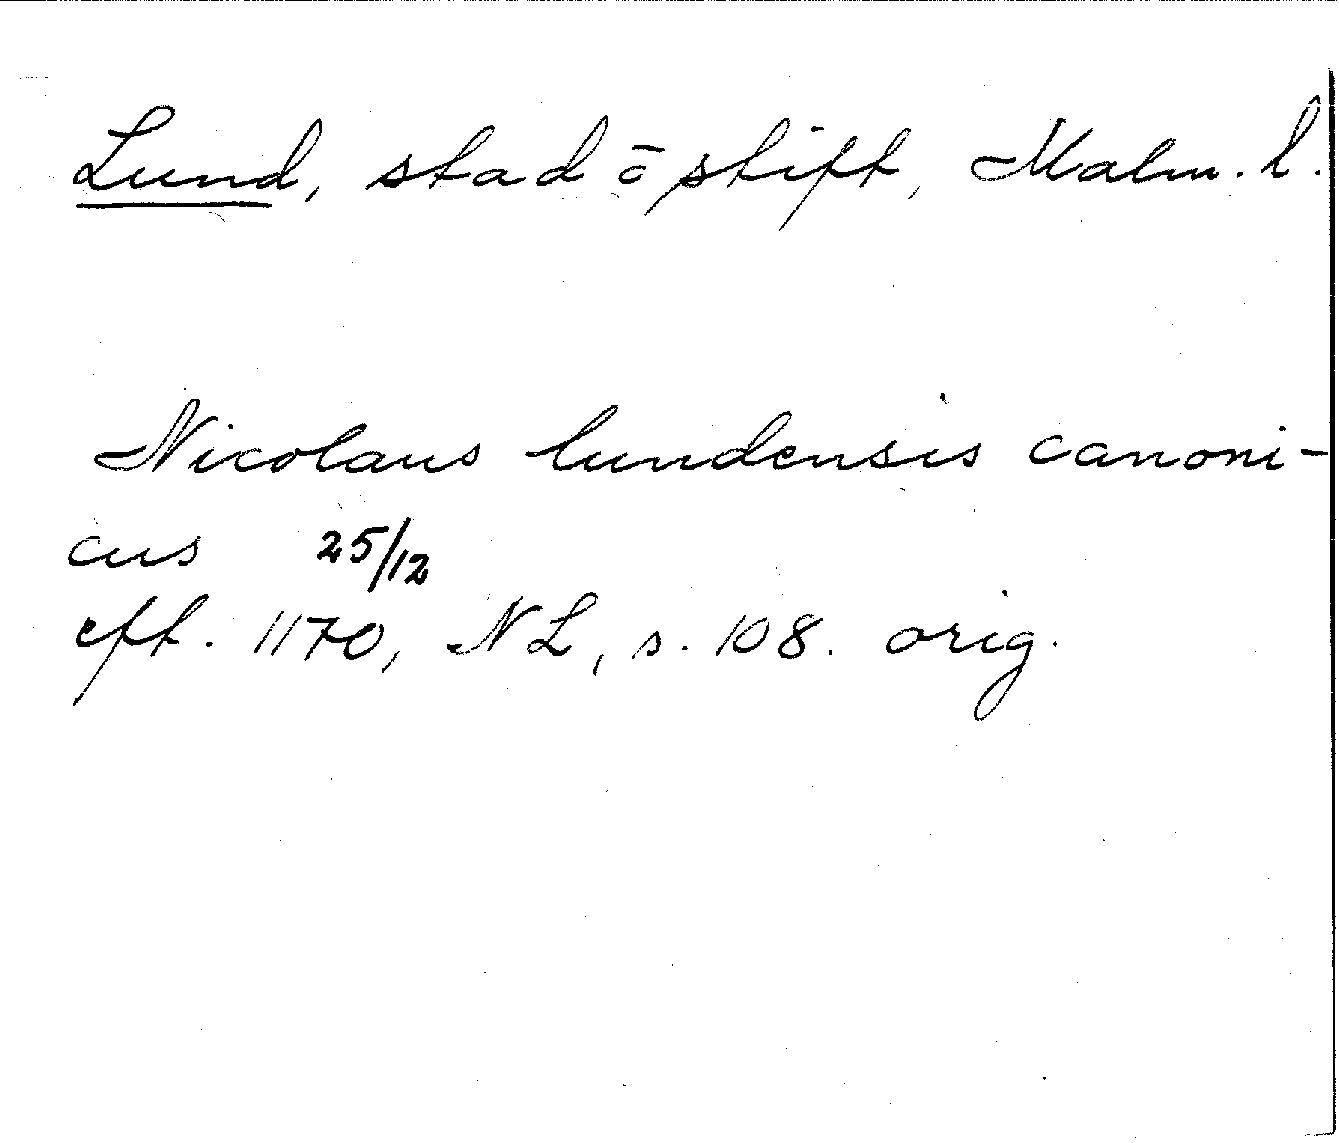 Lund, stad ō stift, Malm. l.
Nicolaus lundensis canoni-
cus 25/12
eft. 1170, NL, s. 108. orig.